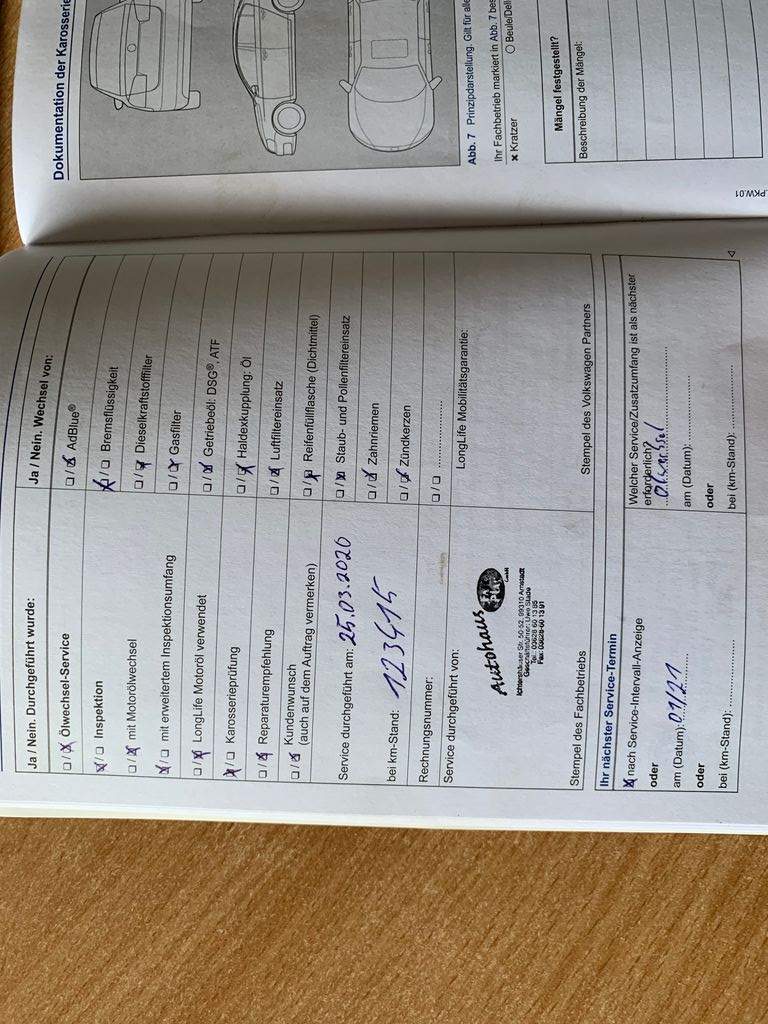 Dokumentation der Karosserie
Abb. 7 Prinzipdarstellung. Gilt für alle
Ihr Fachbetrieb markiert in Abb. 7 bes
✖ Kratzer
○ Beule/Dell
Mängel festgestellt?
Beschreibung der Mängel:
PKW.01
Ja / Nein. Durchgeführt wurde:
☐/☒ Ölwechsel-Service
☒/☐ Inspektion
☐/☒ mit Motorölwechsel
☒/☐ mit erweitertem Inspektionsumfang
☐/☒ LongLife Motoröl verwendet
☒/☐ Karosserieprüfung
☐/☒ Reparaturempfehlung
☐/☒ Kundenwunsch
(auch auf dem Auftrag vermerken)
Service durchgeführt am: 25.03.2020
bei km-Stand: 123415
Rechnungsnummer:
Service durchgeführt von:
Autohaus
GmbH
Ichtershäuser Str. 50-52, 99310 Arnstadt
Geschäftsführer: Uwe Slade
Tel.: 03628-60 13 85
Fax: 03628-60 13 91
Stempel des Fachbetriebs
Ja / Nein. Wechsel von:
☐/☒ AdBlue®
☒/☐ Bremsflüssigkeit
☐/☒ Dieselkraftstofffilter
☐/☒ Gasfilter
☐/☒ Getriebeöl: DSG®, ATF
☐/☒ Haldexkupplung: Öl
☐/☒ Luftfiltereinsatz
☐/☒ Reifenfüllflasche (Dichtmittel)
☐/☒ Staub- und Pollenfiltereinsatz
☐/☒ Zahnriemen
☐/☒ Zündkerzen
☐/☐ ....................
LongLife Mobilitätsgarantie:
Stempel des Volkswagen Partners
Ihr nächster Service-Termin
☒ nach Service-Intervall-Anzeige
oder
am (Datum): 01/21
oder
bei (km-Stand): ....................
Welcher Service/Zusatzumfang ist als nächster
erforderlich?
Ölwechsel
am (Datum): ....................
oder
bei (km-Stand): ....................